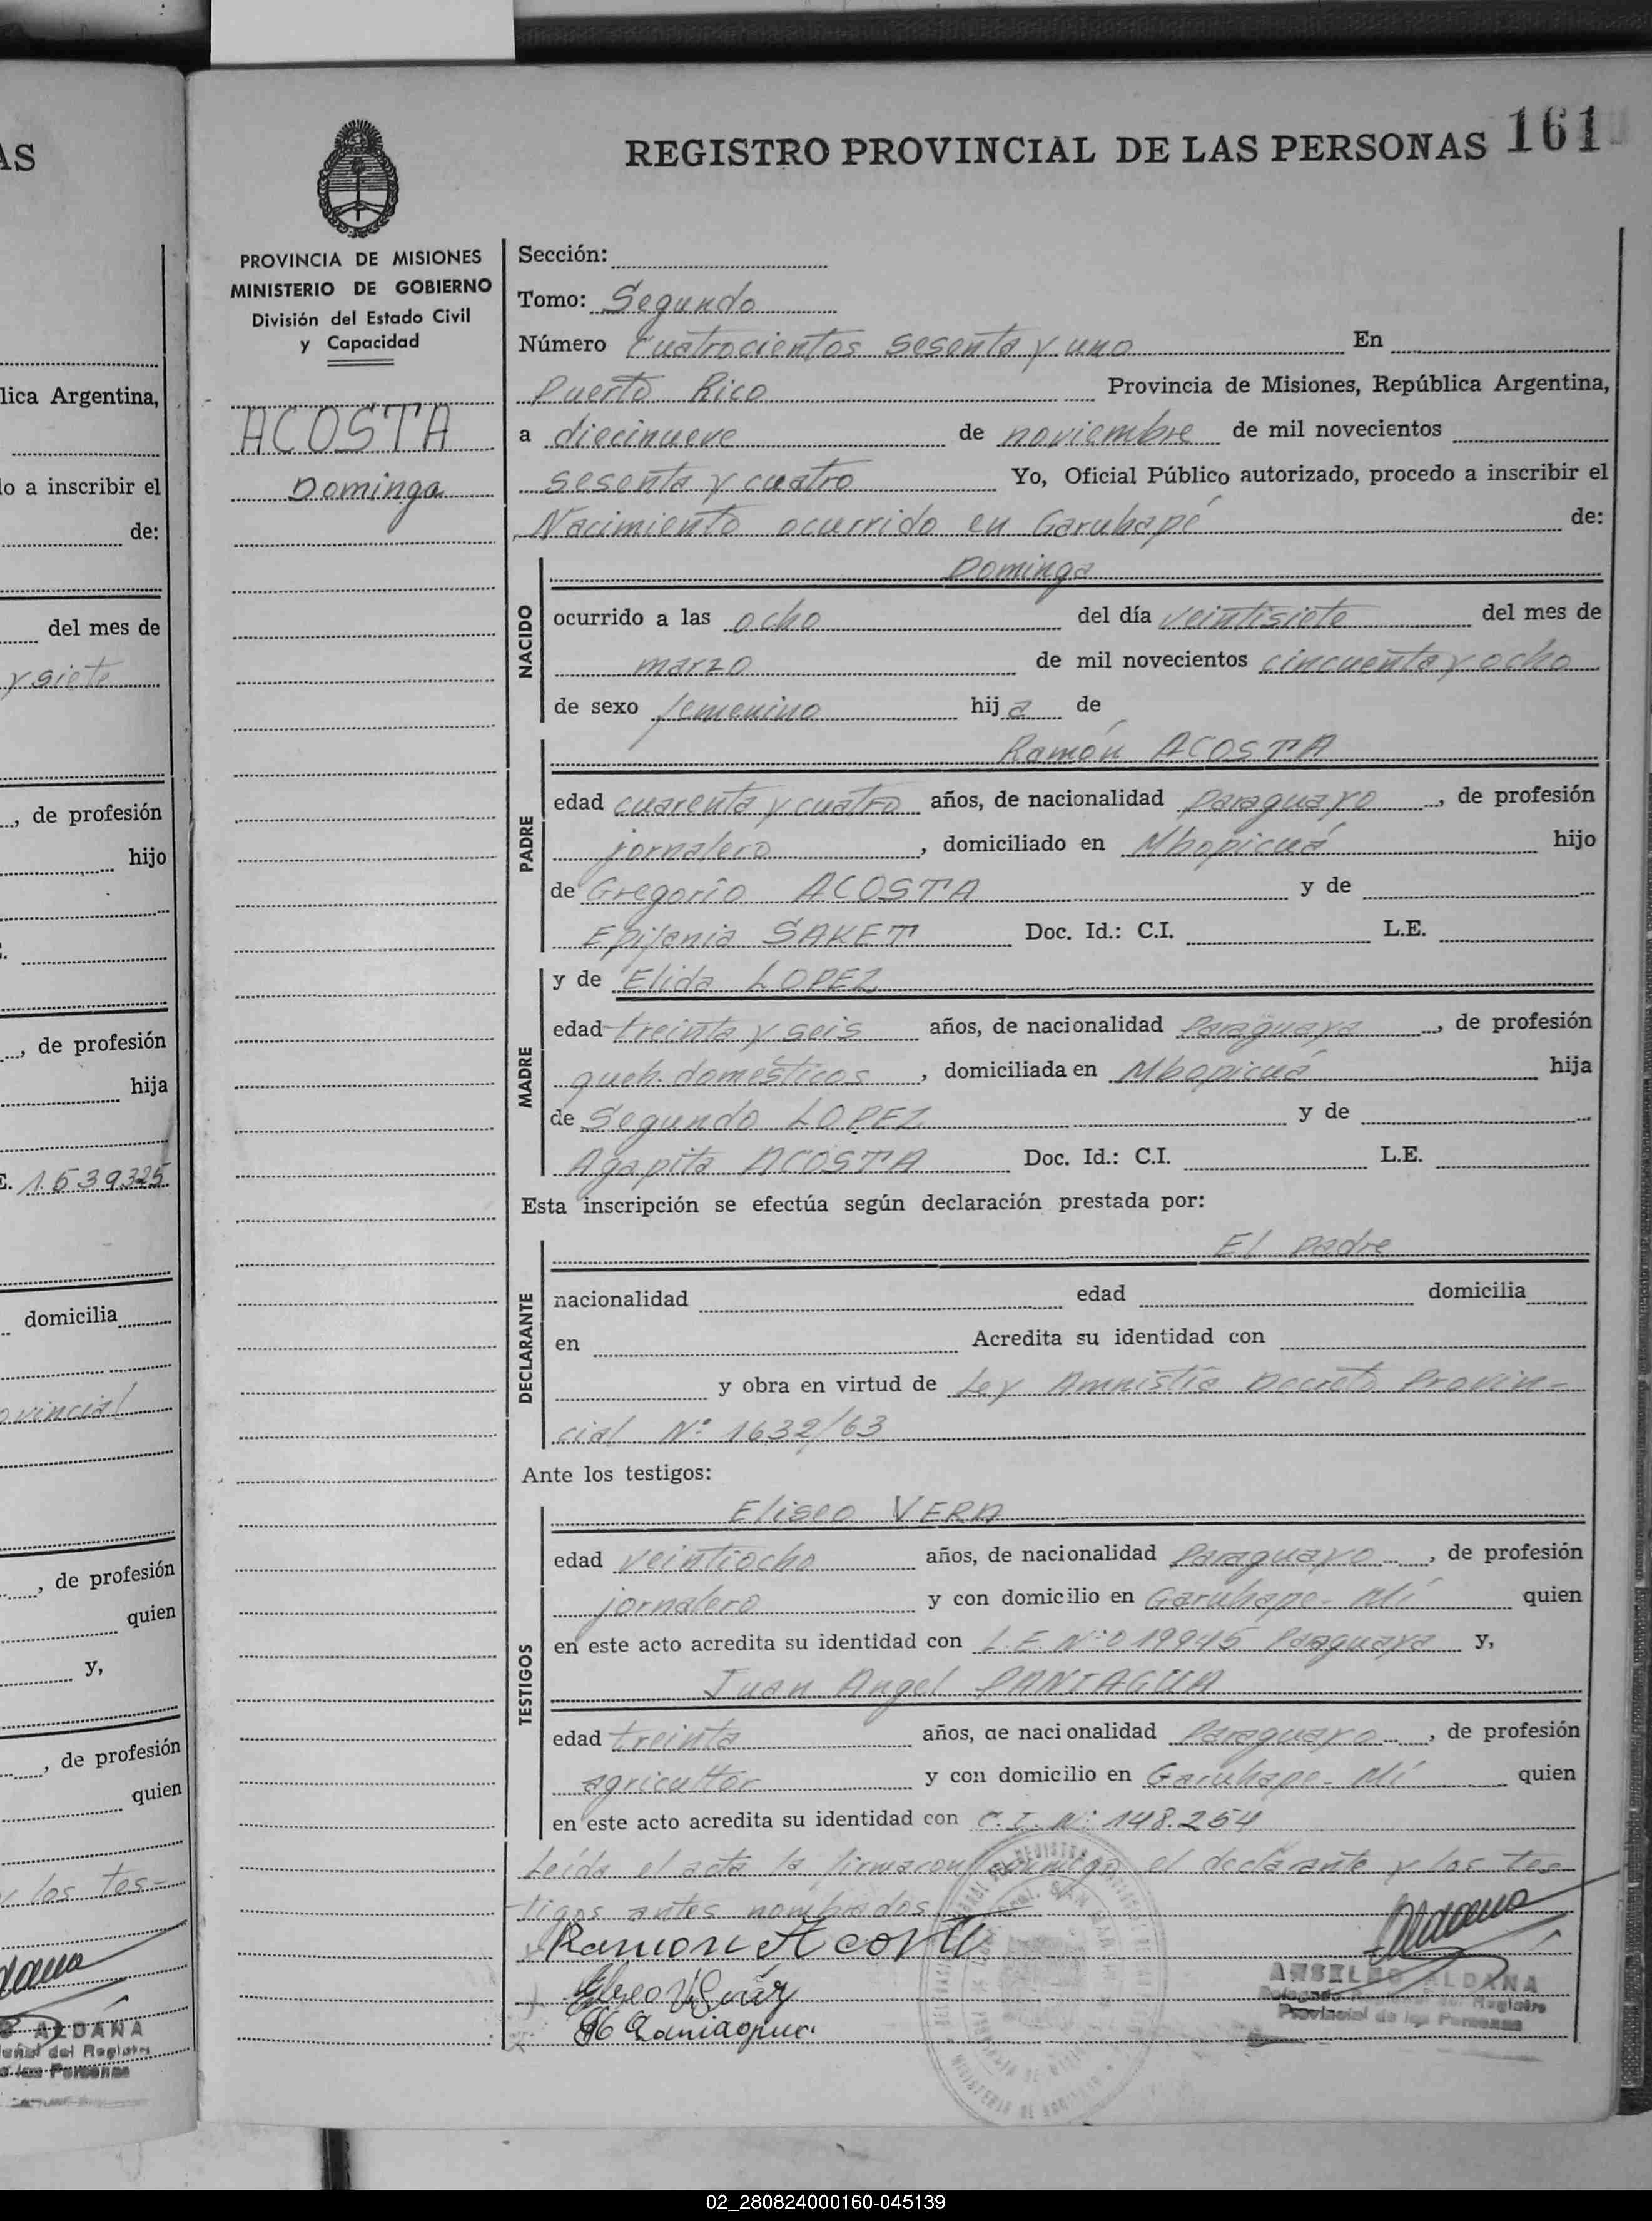 AS
lica Argentina,
lo a inscribir el
de:
del mes de
y siete
, de profesión
hijo
, de profesión
hija
1.639325
domicilia
ovincial
, de profesión
quien
y,
, de profesión
quien
y los tes-
ALDANA
REGISTRO PROVINCIAL DE LAS PERSONAS 161
PROVINCIA DE MISIONES
MINISTERIO DE GOBIERNO
División del Estado Civil
y Capacidad
ACOSTA
Dominga
Sección:
Tomo: Segundo
Número Cuatrocientos sesenta y uno En
Puerto Rico Provincia de Misiones, República Argentina,
a diecinueve de noviembre de mil novecientos
sesenta y cuatro Yo, Oficial Público autorizado, procedo a inscribir el
Nacimiento ocurrido en Garuhapé de:
NACIDO
Dominga
ocurrido a las ocho del día veintisiete del mes de
marzo de mil novecientos cincuenta y ocho
de sexo femenino hija de
PADRE
Ramón ACOSTA
edad cuarenta y cuatro años, de nacionalidad Paraguayo, de profesión
jornalero, domiciliado en Mbopicuá hijo
de Gregorio ACOSTA y de
Epifania SAKET Doc. Id.: C.I. L.E.
MADRE
y de Elida LOPEZ
edad treinta y seis años, de nacionalidad Paraguaya, de profesión
queh. domésticos, domiciliada en Mbopicuá hija
de Segundo LOPEZ y de
Agapita ACOSTA Doc. Id.: C.I. L.E.
Esta inscripción se efectúa según declaración prestada por:
DECLARANTE
El padre
nacionalidad edad domicilia
en Acredita su identidad con
y obra en virtud de Ley Amnistía Decreto Provin-
cial Nº 1632/63
Ante los testigos:
TESTIGOS
Eliseo VERA
edad veintiocho años, de nacionalidad Paraguayo, de profesión
jornalero y con domicilio en Garuhape-Mí quien
en este acto acredita su identidad con L.E. Nº 019945 Paraguaya y,
Juan Angel PANIAGUA
edad treinta años, de nacionalidad Paraguayo, de profesión
agricultor y con domicilio en Garuhape-Mí quien
en este acto acredita su identidad con C.I. Nº 148.254
Leída el acta la firmaron conmigo el declarante y los tes-
tigos antes nombrados.
Ramon Acosta
ANSELMO ALDANA
Delegado del Registro
Provincial de las Personas
02_280824000160-045139